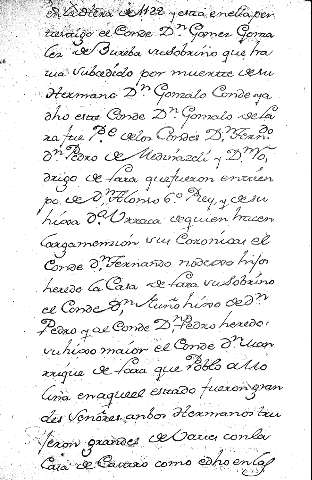 en la otera de 1122 y esta en ella por
testigo el Conde Dn Gomez Gonza
lez de Bureba su sobrino que ha
via subcedido por muerte de su
Hermano Dn Gonzalo Conde ya
dho este Conde Dn Gonzalo de La
ra fue Pe de los Condes Dn Ferndo
Dn Pedro de Medinazeli y Dn Ro
drigo de Lara que fueron en tiem
po de Dn Alonso 6o Rey, y de su
hixa Da Urraca de quien hacen
larga mencion sus Coronicas el
Conde Dn Fernando no dexo hijos
heredo la Casa de Lara su sobrino
el Conde Dn Nuño hixo de Dn
Pedro y al Conde Dn Pedro heredo
su hixo maior el Conde Dn Man
rrique de Lara que Poblo a Mo
lina en aquel estado fueron gran
des Señores anbos Hermanos tru
jeron grandes de Vares con la
Casa de Castro como edho en las